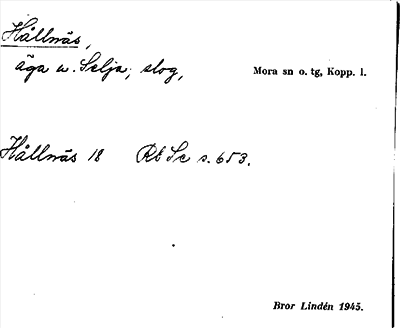 Hållnäs,
äga w. Selja, slog,
Mora sn o. tg, Kopp. l.
Hållnäs 18 Rt Sc s. 653.
Bror Lindén 1945.